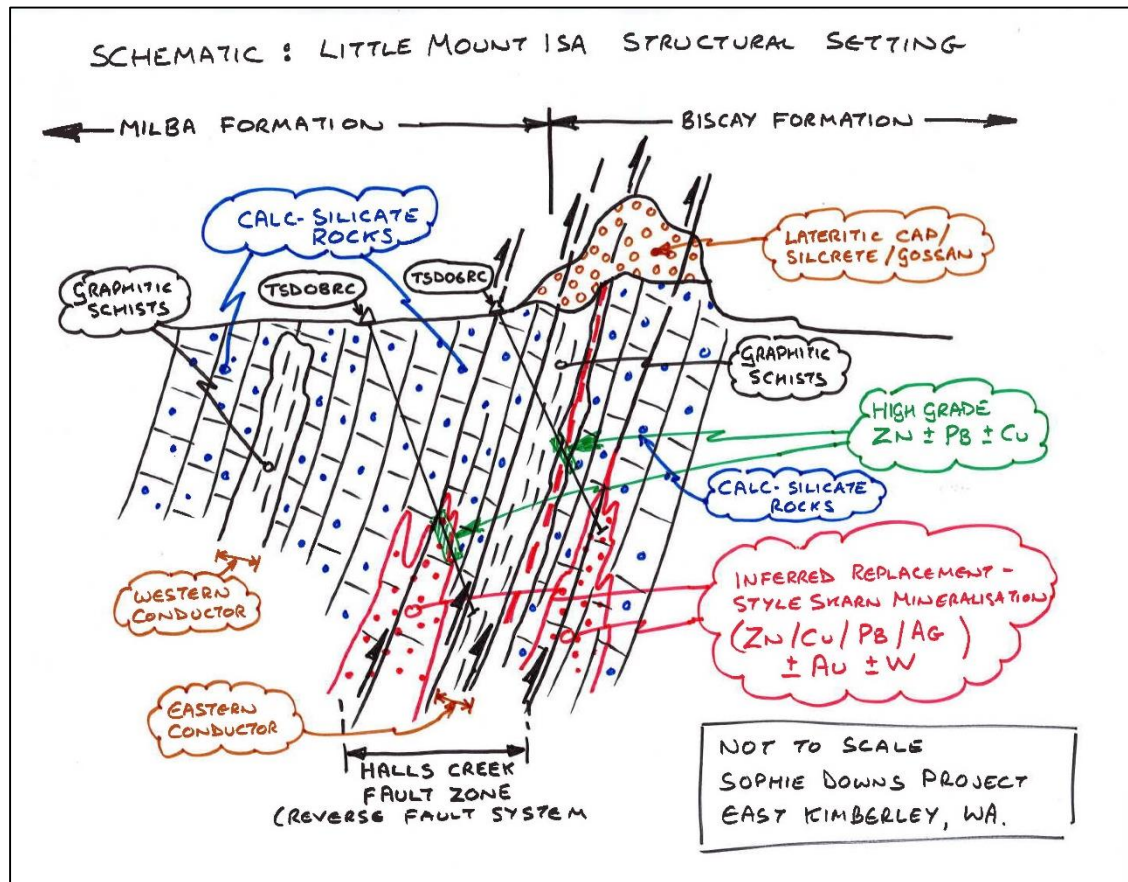 SCHEMATIC : LITTLE MOUNT ISA STRUCTURAL SETTING
MILBA FORMATION
BISCAY FORMATION
CALC-SILICATE
ROCKS
LATERITIC CAP/
SILCRETE/GOSSAN
GRAPHITIC
SCHISTS
TSD08RC
TSD06RC
GRAPHITIC
SCHISTS
HIGH GRADE
ZN ± PB ± CU
CALC-SILICATE
ROCKS
WESTERN
CONDUCTOR
INFERRED REPLACEMENT-
STYLE SKARN MINERALISATION
(ZN/CU/PB/AG)
± AU ± W
EASTERN
CONDUCTOR
HALLS CREEK
FAULT ZONE
(REVERSE FAULT SYSTEM
NOT TO SCALE
SOPHIE DOWNS PROJECT
EAST KIMBERLEY, WA.